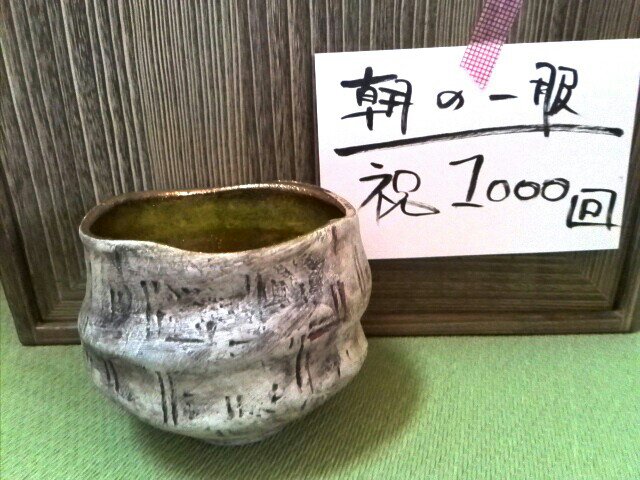 朝の一服
祝1000回